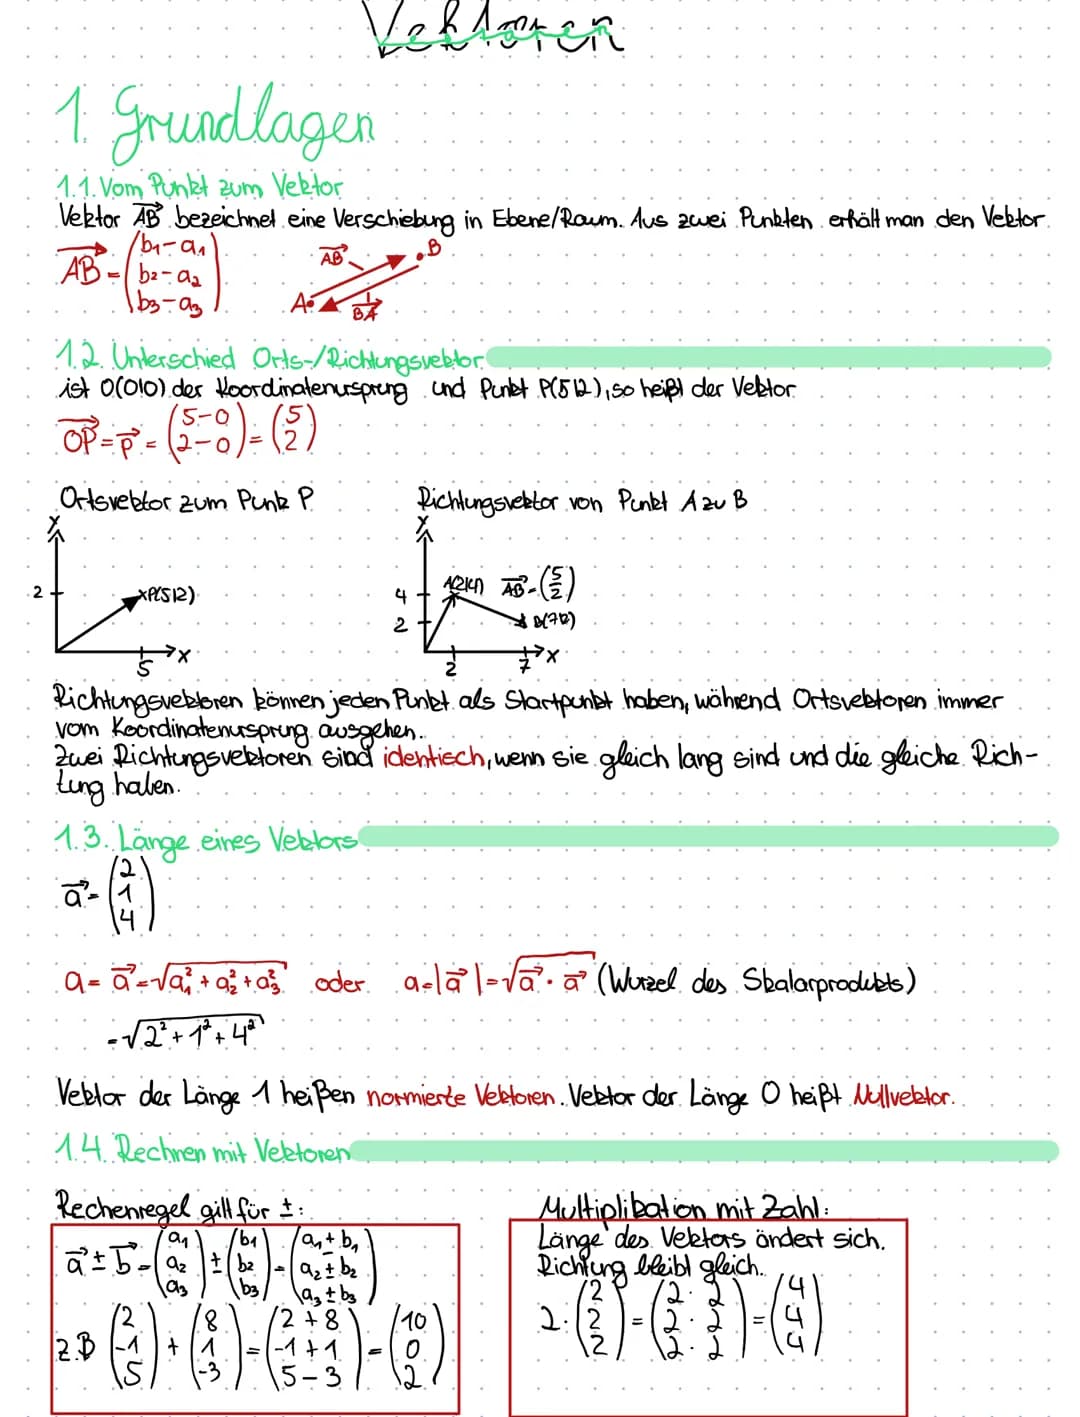 Vektoren
1. Grundlagen
1.1. Vom Punkt zum Vektor
Vektor AB⃗ bezeichnet eine Verschiebung in Ebene/Raum. Aus zwei Punkten erhält man den Vektor
AB⃗ = (b₁-a₁
b₂-a₂
b₃-a₃)
AB⃗ B
A BA⃗
1.2. Unterschied Orts-/Richtungsvektor
ist O(0|0) der Koordinatenursprung und Punkt P(5|2), so heißt der Vektor
OP⃗ = p⃗ = (5-0
2-0) = (5
2)
Ortsvektor zum Punk P
Richtungsvektor von Punkt A zu B
Y
2 P(5|2)
5 X
Y
4 A(2|4) AB⃗ = (5
2)
2 B(7|2)
2 7 X
Richtungsvektoren können jeden Punkt als Startpunkt haben, während Ortsvektoren immer
vom Koordinatenursprung ausgehen.
Zwei Richtungsvektoren sind identisch, wenn sie gleich lang sind und die gleiche Rich-
tung haben.
1.3. Länge eines Vektors
a⃗ = (2
1
4)
a = a⃗ = √a₁² + a₂² + a₃² oder a = |a⃗| = √a⃗ · a⃗ (Wurzel des Skalarprodukts)
= √2² + 1² + 4²
Vektor der Länge 1 heißen normierte Vektoren. Vektor der Länge 0 heißt Nullvektor.
1.4. Rechnen mit Vektoren
Rechenregel gilt für ±:
a⃗ ± b⃗ = (a₁ a₂ a₃) ± (b₁ b₂ b₃) = (a₁ ± b₁ a₂ ± b₂ a₃ ± b₃)
z.B (2 -1 5) + (8 1 -3) = (2 + 8 -1 + 1 5 - 3) = (10 0 2)
Multiplikation mit Zahl:
Länge des Vektors ändert sich.
Richtung bleibt gleich.
2 · (2 2 2) = (2 · 2 2 · 2 2 · 2) = (4 4 4)